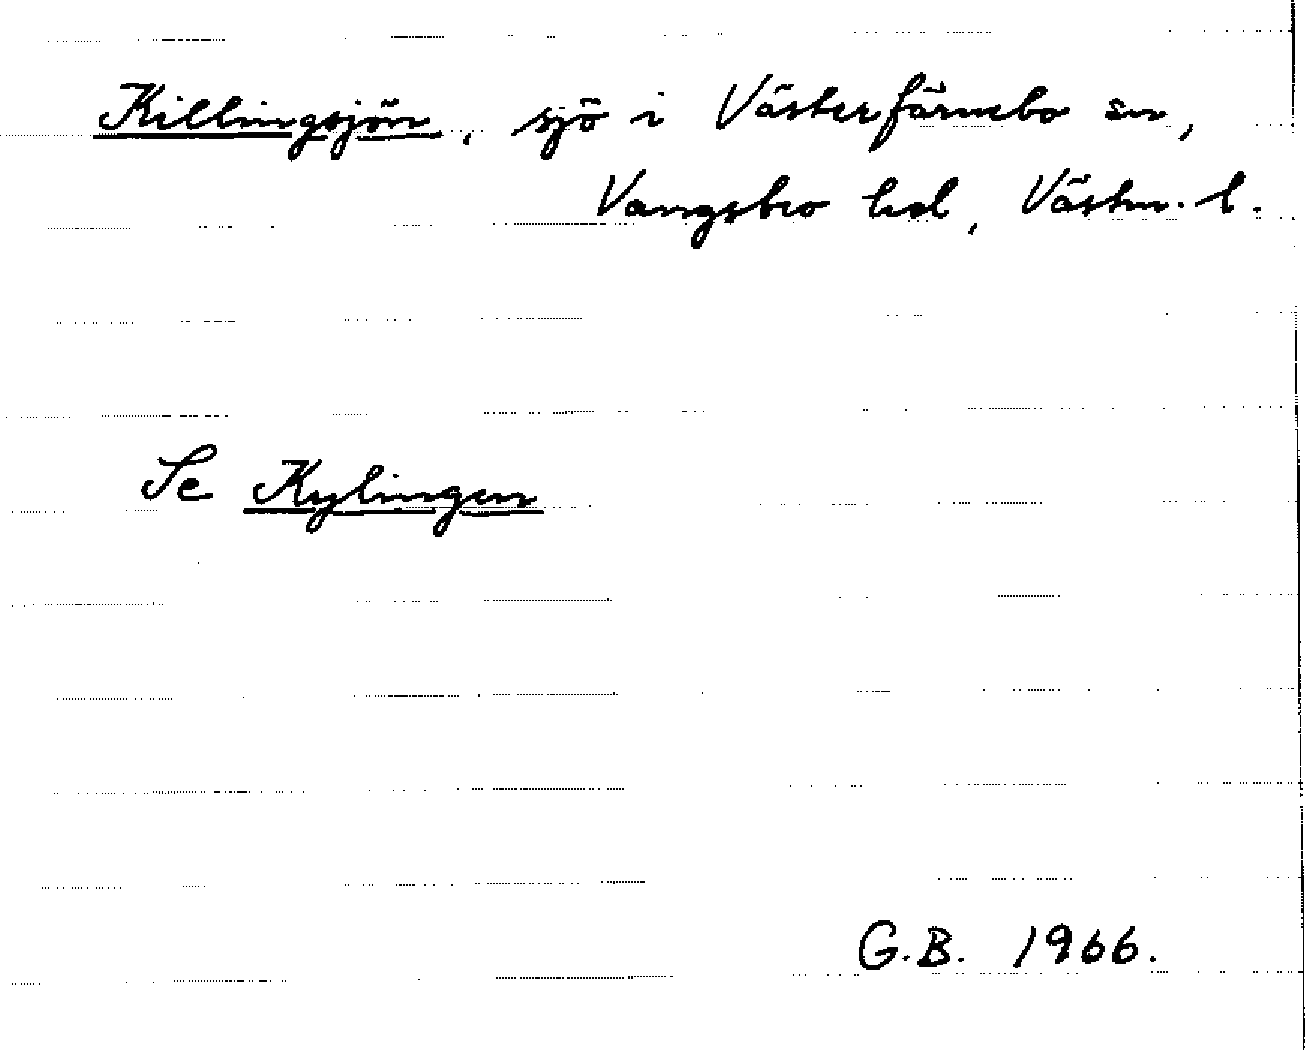 Killingsjön, sjö i Västerfärnebo sn,
Vangsbro hd, Västm. l.
Se Kylingen
G.B. 1966.